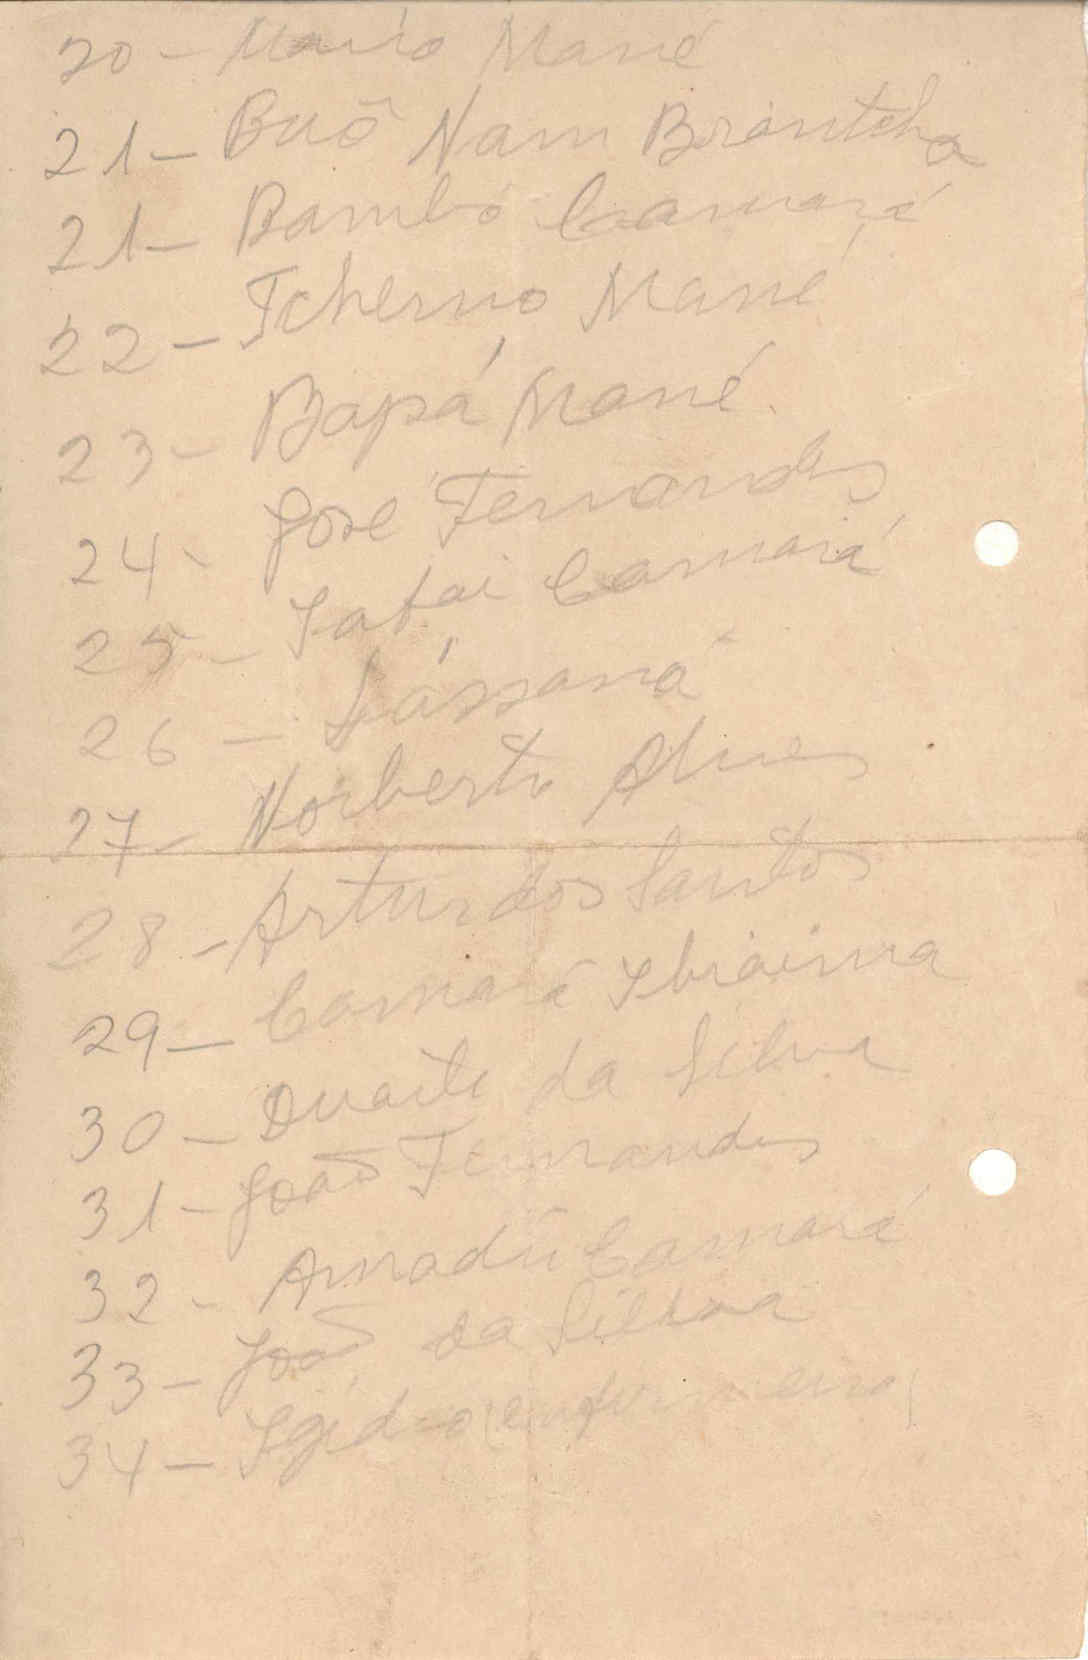 20 - Mário Mané
21 - Buô Nam Brantcha
21 - Bambó Camará
22 - Tcherno Mané
23 - Bapá Mané
24 - José Fernandes
25 - Iafai Camará
26 - Lássana
27 - Norberto Alves
28 - Artur dos Santos
29 - Camará Ibraima
30 - Duarte da Silva
31 - João Fernandes
32 - Amadú Camará
33 - João da Silva
34 - Igidio (enfermeiro)